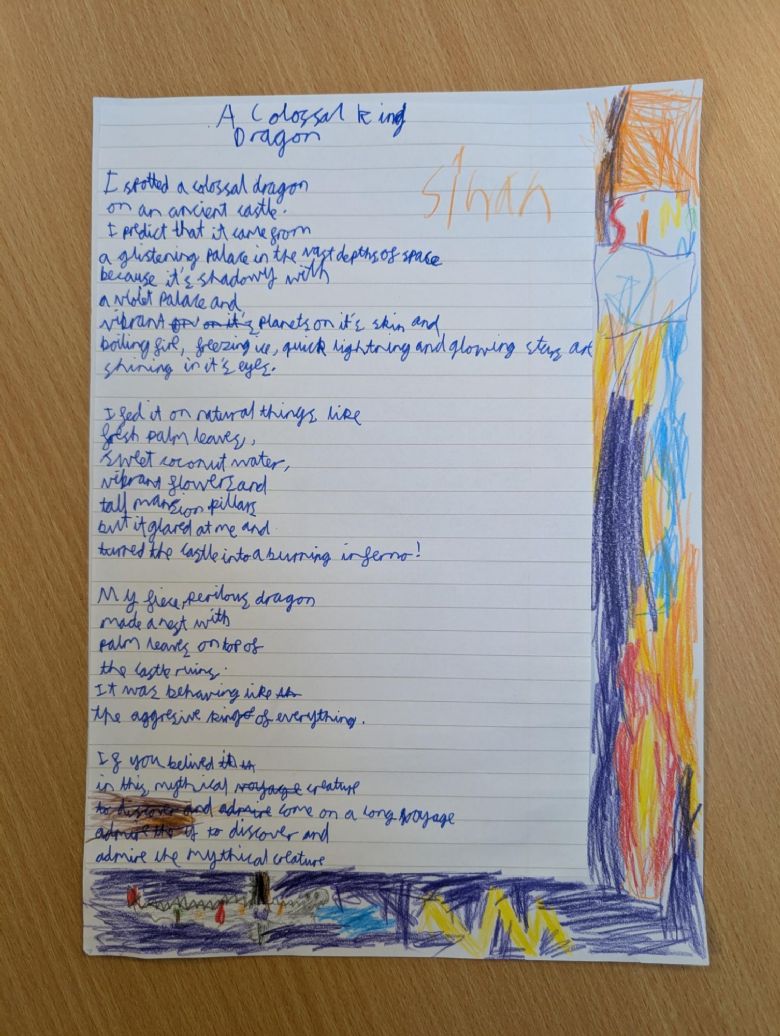 A Colossal king
Dragon
sinan
I spotted a colossal dragon
on an ancient castle.
I predict that it came from
a glistening palace in the vast depths of space
because it's shadowy with
a violet palace and
vibrant on on it's planets on it's skin and
boiling fire, freezing ice, quick lightning and glowing stars are
shining in it's eyes.
I fed it on natural things like
fresh palm leaves,,
sweet coconut water,
vibrant flowers and
tall mansion pillars
but it glared at me and
turned the castle into a burning inferno!
My fiece, perilous dragon
made a nest with
palm leaves on top of
the castle ruins.
It was behaving like th
the aggresive king of everything.
If you belived it th
in this mythical voyage creature
to discover and admire come on a long voyage
admire the if to discover and
admire the mythical creature